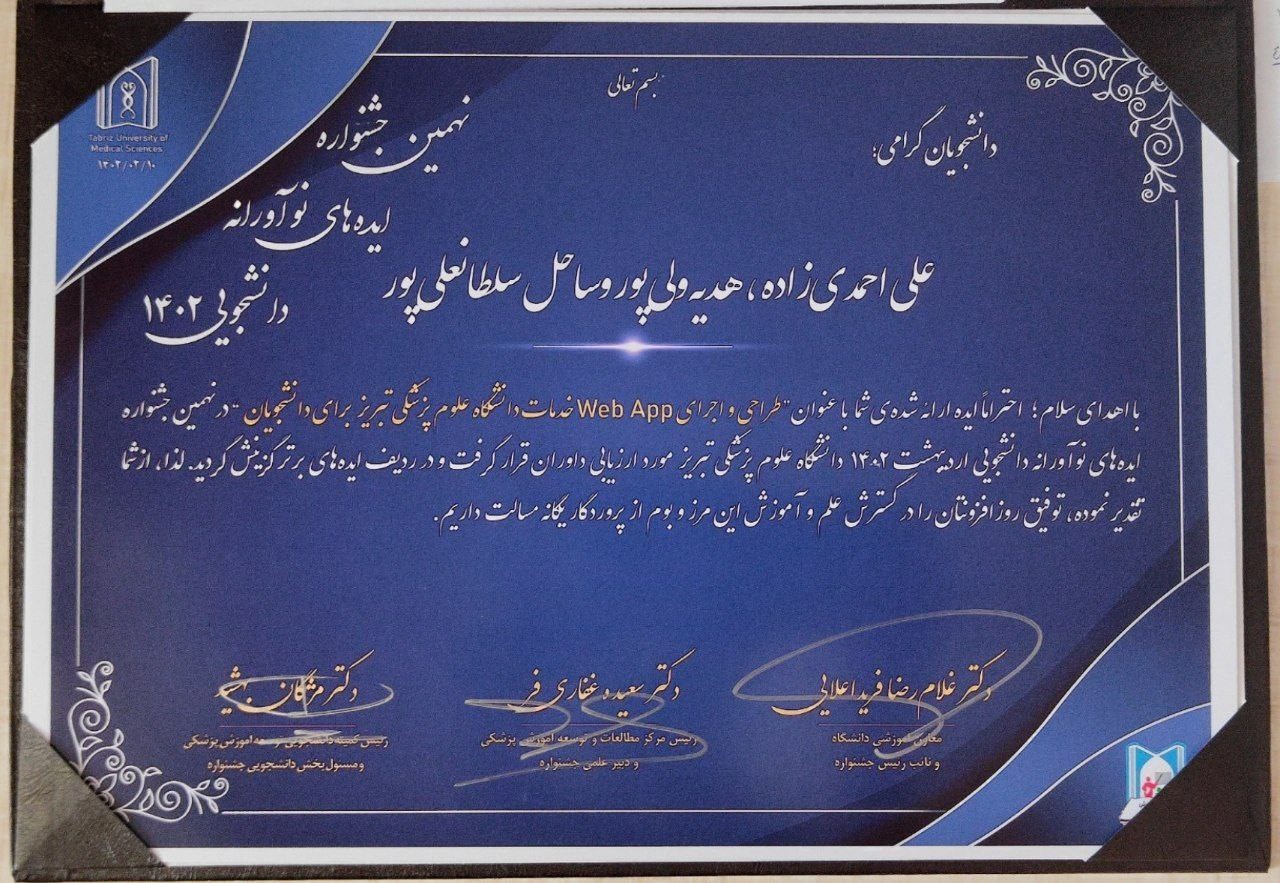 بسم تعالی
Tabriz University of
Medical Sciences
۱۴۰۲/۰۲/۱۰
نهمین جشنواره
ایده های نوآورانه
دانشجویی ۱۴۰۲
دانشجویان گرامی؛
علی احمدی زاده، هدیه ولی پور و ساحل سلطانعلی پور
با اهدای سلام؛ احتراماً ایده ارائه شده ی شما با عنوان "طراحی و اجرای Web App خدمات دانشگاه علوم پزشکی تبریز برای دانشجویان" در نهمین جشنواره
ایده های نوآورانه دانشجویی اردیبهشت ۱۴۰۲ دانشگاه علوم پزشکی تبریز مورد ارزیابی داوران قرار گرفت و در ردیف ایده های برتر گزینش گردید. لذا، از شما
تقدیر نموده، توفیق روزافزونتان را در گسترش علم و آموزش این مرز و بوم از پروردگار یگانه مسالت داریم.
دکتر غلام رضا فرید اعلایی
معاون آموزشی دانشگاه
و نایب رئیس جشنواره
دکتر سعیده غفاری فر
رئیس مرکز مطالعات و توسعه آموزش پزشکی
و دبیر علمی جشنواره
دکتر مژگان
رئیس کمیته دانشجویی توسعه آموزش پزشکی
و مسئول بخش دانشجویی جشنواره